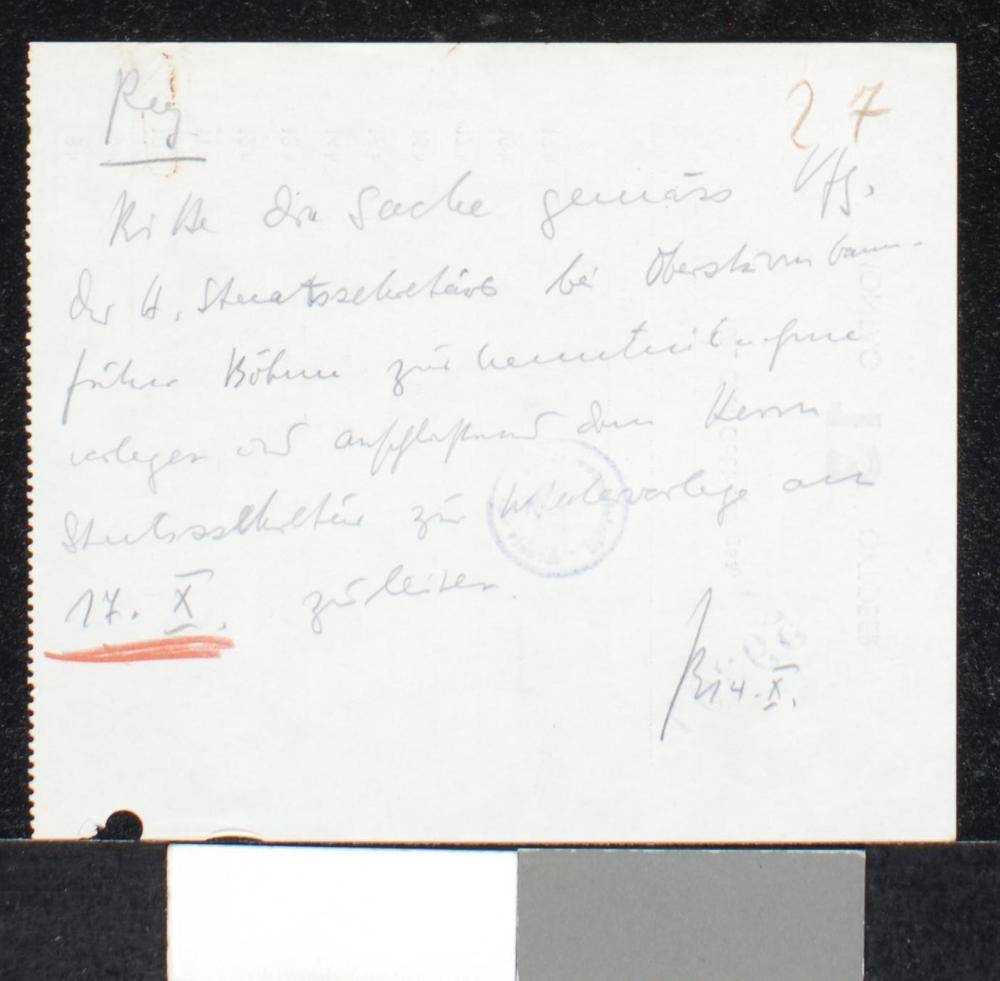 Reg
27
Bitte die Sache gemäss Vfg.
der H. Staatssekretärs bei Obersturmbann-
führer Böhme zur Kenntnisnahme
vorlegen und anschließend dem Herrn
Staatssekretär zur Wiedervorlage am
17. X. zuleiten.
14. X.